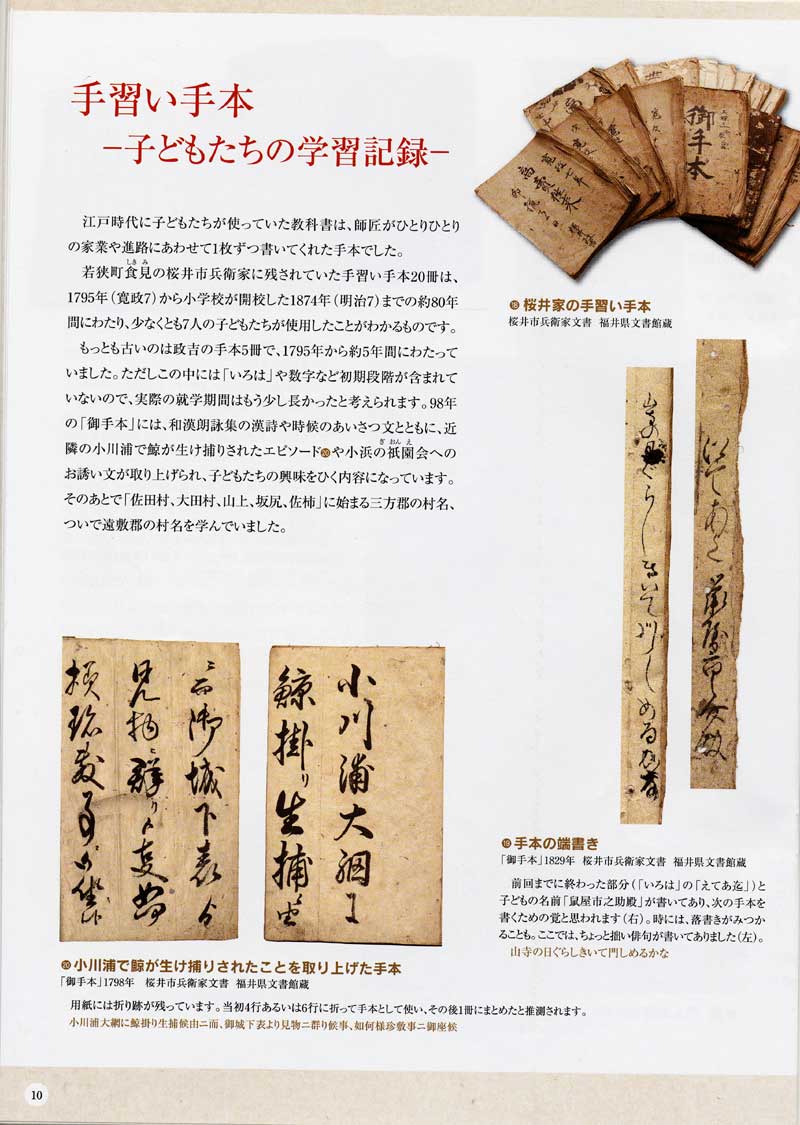 手習い手本
−子どもたちの学習記録−
江戸時代に子どもたちが使っていた教科書は、師匠がひとりひとり
の家業や進路にあわせて1枚ずつ書いてくれた手本でした。
若狭町食見の桜井市兵衛家に残されていた手習い手本20冊は、
1795年（寛政7）から小学校が開校した1874年（明治7）までの約80年
間にわたり、少なくとも7人の子どもたちが使用したことがわかるものです。
もっとも古いのは政吉の手本5冊で、1795年から約5年間にわたって
いました。ただしこの中には「いろは」や数字など初期段階が含まれて
いないので、実際の就学期間はもう少し長かったと考えられます。98年
の「御手本」には、和漢朗詠集の漢詩や時候のあいさつ文とともに、近
隣の小川浦で鯨が生け捕りされたエピソード⑳や小浜の祇園会への
お誘い文が取り上げられ、子どもたちの興味をひく内容になっています。
そのあとで「佐田村、大田村、山上、坂尻、佐柿」に始まる三方郡の村名、
ついで遠敷郡の村名を学んでいました。
御手本
⑱ 桜井家の手習い手本
桜井市兵衛家文書 福井県文書館蔵
山寺の日ぐらしきいて門しめるかな
⑲ 手本の端書き
「御手本」1829年 桜井市兵衛家文書 福井県文書館蔵
前回までに終わった部分（「いろは」の「えてあ迄」）と
子どもの名前「鼠屋市之助殿」が書いてあり、次の手本を
書くための覚と思われます（右）。時には、落書きがみつか
ることも。ここでは、ちょっと拙い俳句が書いてありました（左）。
山寺の日ぐらしきいて門しめるかな
小川浦大網に
鯨掛り生捕候由
ニ而御城下表より
見物ニ群り候事、如何
様珍敷事ニ御座候
⑳ 小川浦で鯨が生け捕りされたことを取り上げた手本
「御手本」1798年 桜井市兵衛家文書 福井県文書館蔵
用紙には折り跡が残っています。当初4行あるいは6行に折って手本として使い、その後1冊にまとめたと推測されます。
小川浦大網に鯨掛り生捕候由ニ而、御城下表より見物ニ群り候事、如何様珍敷事ニ御座候
10